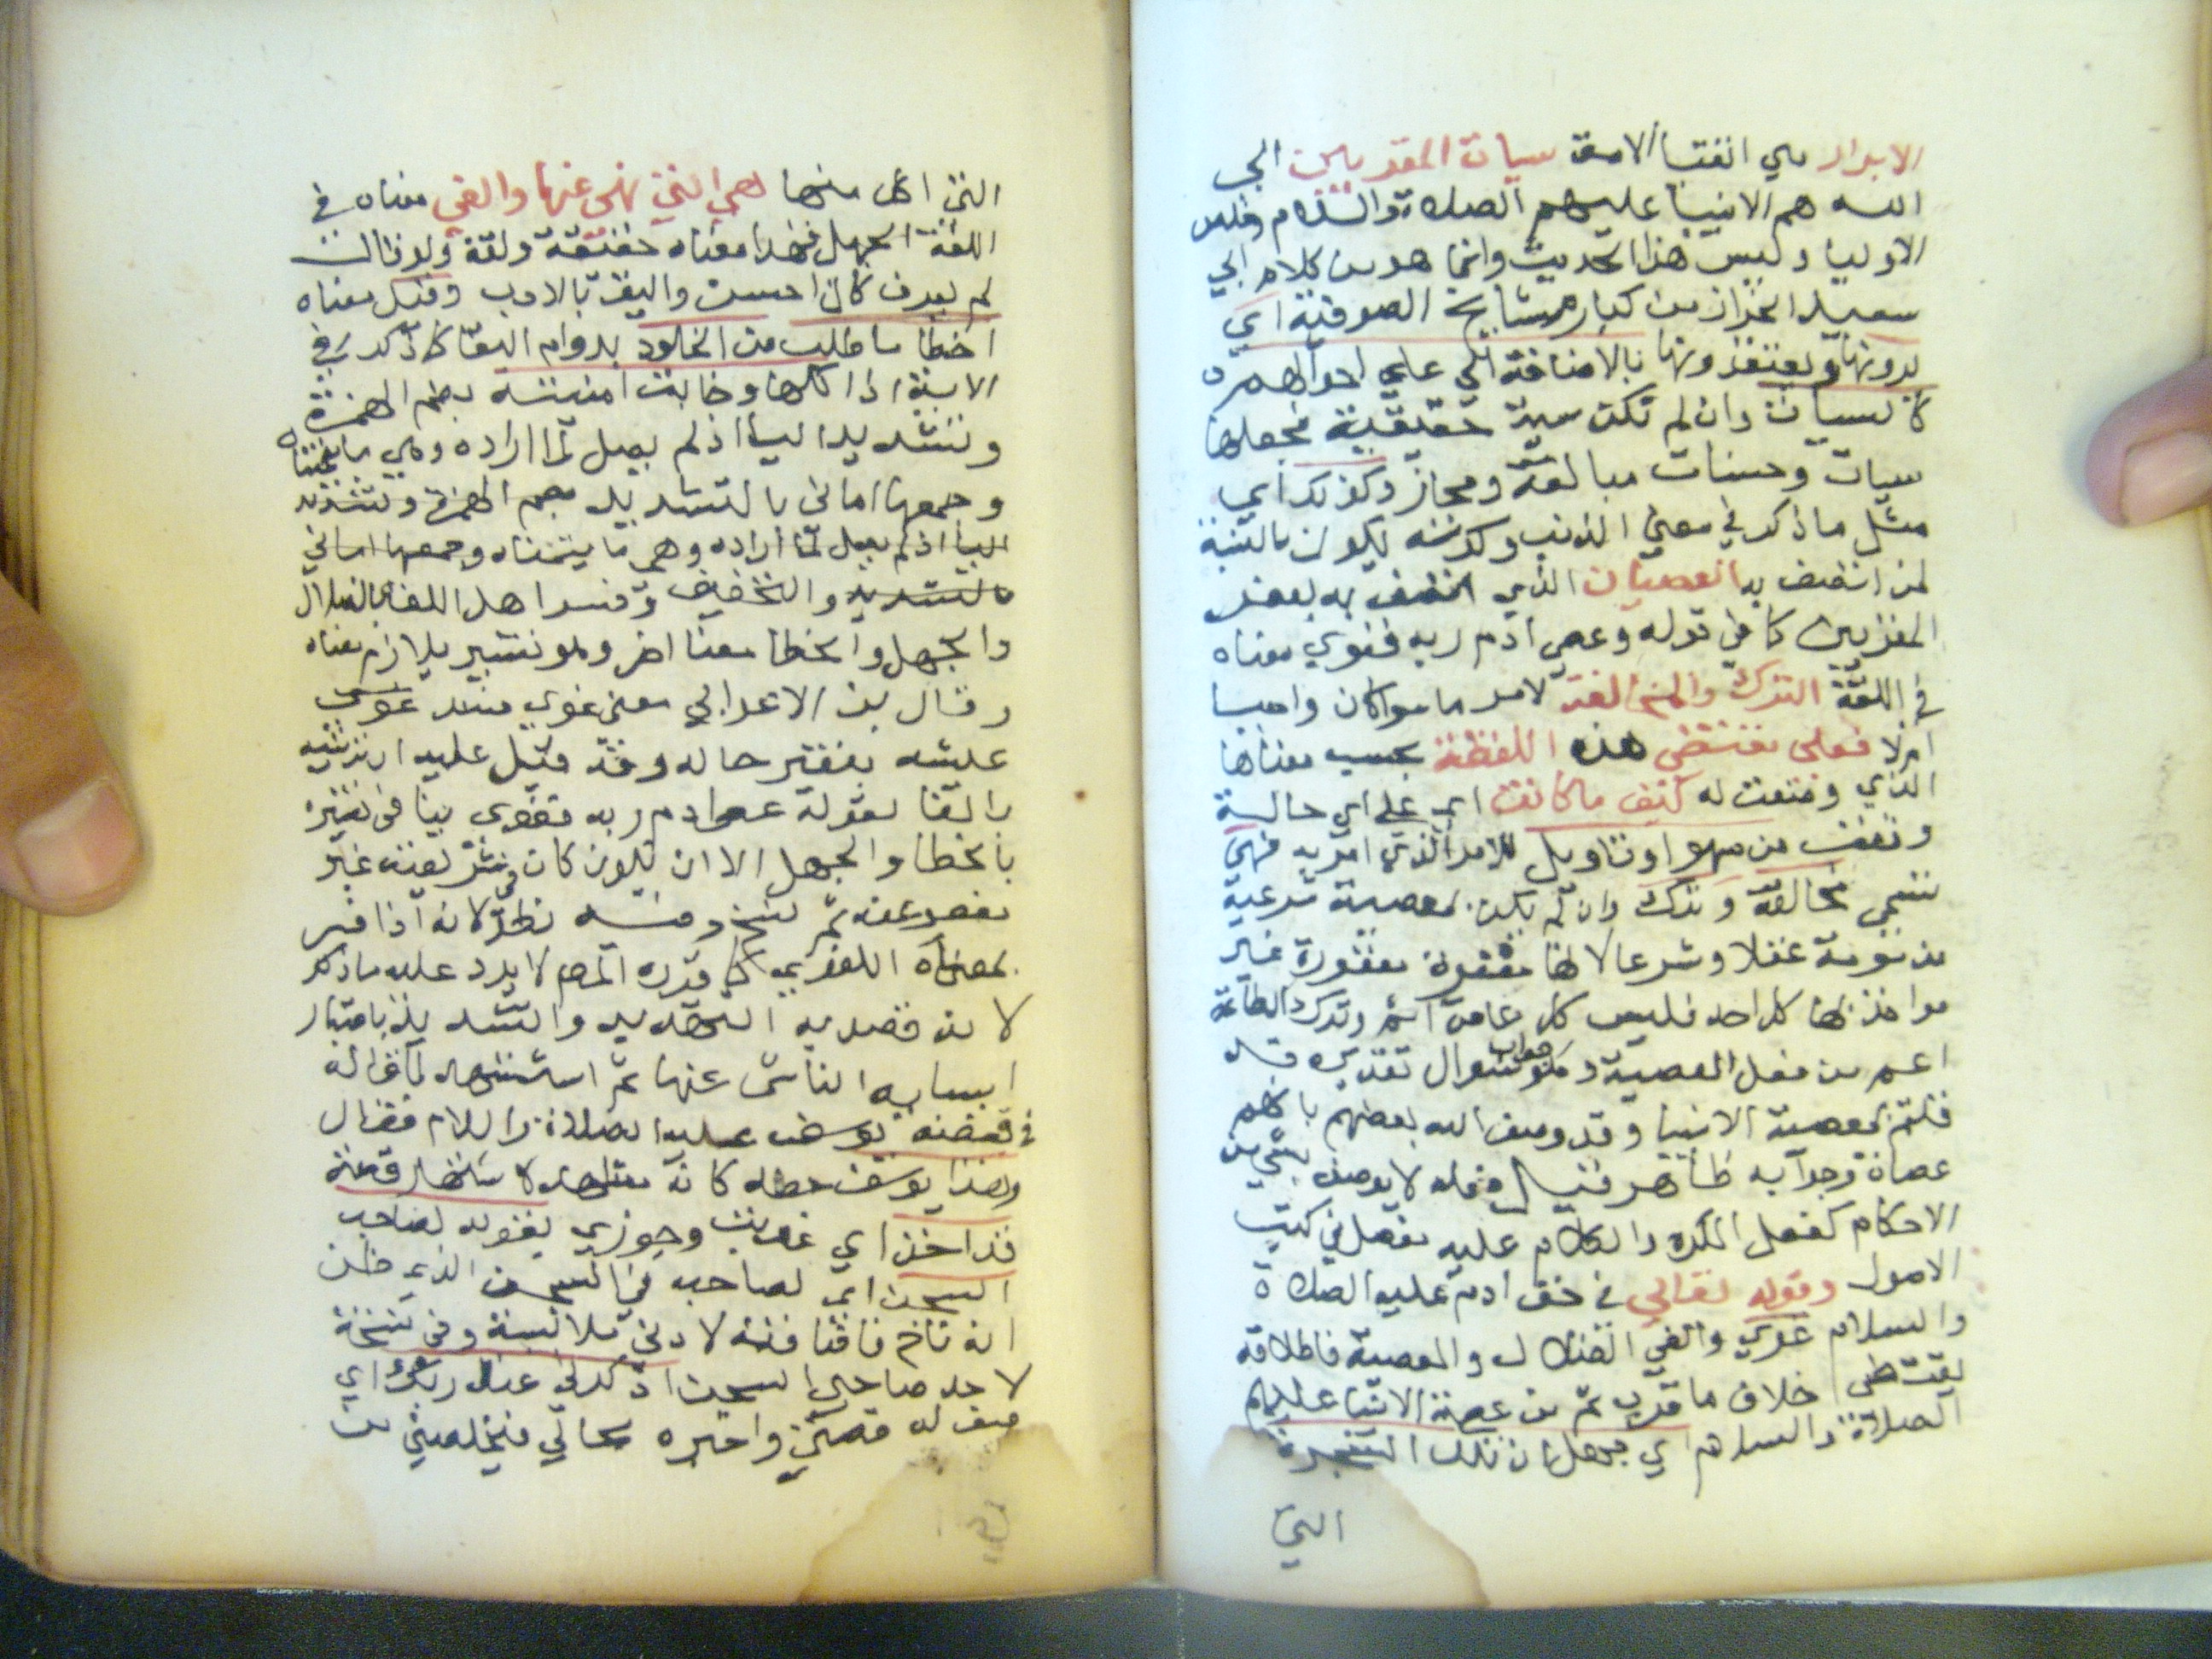 الابرار من اتقيا الامة سيات المقربين الى
الله هم الانبيا عليهم الصلاة والسلام وخلص
الاوليا وليس هذا الحديث وانما هو من كلام ابي
سعيد الخراز من كبار مشايخ الصوفية اي
يرونها ويعتقدونها بالاضافة الى علي احوالهم
كالسيات وان لم تكن سيئة حقيقية فجعلها
سيات وحسنات مبالغة ومجاز وكذلك اي
مثل ما ذكر في معنى الذنب وكونه يكون بالنسبة
لمن اتصف به العصيان الذي اتصف به بعض
المقربين كما في قوله وعصى ادم ربه فغوى معناه
في اللغة الترك والمخالفة لامر ما سوا كان واجبا
ام لا فعلى مقتضى هذه اللفظة بحسب معناها
الذي وضعت له كيف ما كانت اي على اي حالة
وقعت من سهو او تاويل للامر الذي امر به فهي
تسمى مخالفة وترك وان لم يكن معصية شرعية
مذمومة عقلا وشرعا لانها مغفورة غير
مواخذ بها كل احد فليس كل عاص اثم وترك الطاعة
اعم من فعل المعصية وهو جواب سوال تقديره قد
قلتم بعصمة الانبيا وقد وصف الله بعضهم بانهم
عصاة وجوابه ظاهر
الاحكام كفعل المكره والكلام عليه مفصل في كتب
الاصول وقوله تعالى في حق ادم عليه الصلاة
والسلام غوى والغي الضلال والمعصية فاطلاقه
يقتضي خلاف ما قررتم من عصمة الانبيا عليهم
الصلاة والسلام اي جهل ان تلك الشجرة
التي
التي اكل منها هي التي نهى عنها والغي معناه في
اللغة الجهل فهذا معناه حقيقة ولغة ولو قال
لم يعرف كان احسن واليق بالادب وقيل معناه
اخطا ما طلب من الخلود بدوام البقا كما ذكر في
الاية اذ اكلها وخابت امنيته بضم الهمزة
وتشديد اليا اذ لم يصل لما اراده وهي ما يتمناه
وجمعها اماني بالتشديد بضم الهمزة وتشديد
اليا اذ لم يصل لما اراده وهي ما يتمناه وجمعها اماني
بالتشديد والتخفيف وفسر اهل اللغة بالضلال
والجهل والخطا معنا اخر وهو تفسير بلازم معناه
وقال بن الاعرابي معنى غوى فسد عيشه
عليه بتغير حاله وقد قيل عليه ان تنزيه
بالقا لقوله عصى ادم ربه فغوى ينافي تفسيره
بالخطا والجهل الا ان يكون كان في شريعته غير
معفو عنه ثم نسخ وفيه نظر لانه اذا فسر
بمعناه اللغوي كما قرره المص لا يرد عليه ما ذكر
لانه قصد به التهديد والتشديد باعتبار
اسبابه الناشي عنها ثم استشهد لما قاله
في قصة يوسف عليه الصلاة والسلام فقال
وهذا يوسف
قد اخذ اي عوتب وجوزي بقوله لصاحب
السجن اي لصاحبه في السجن الذي ظن
انه ناج
لاحد صاحبي السجن اذكرني عند ربك اي
صف له قصتي واخبره بحالي فيخلصني من